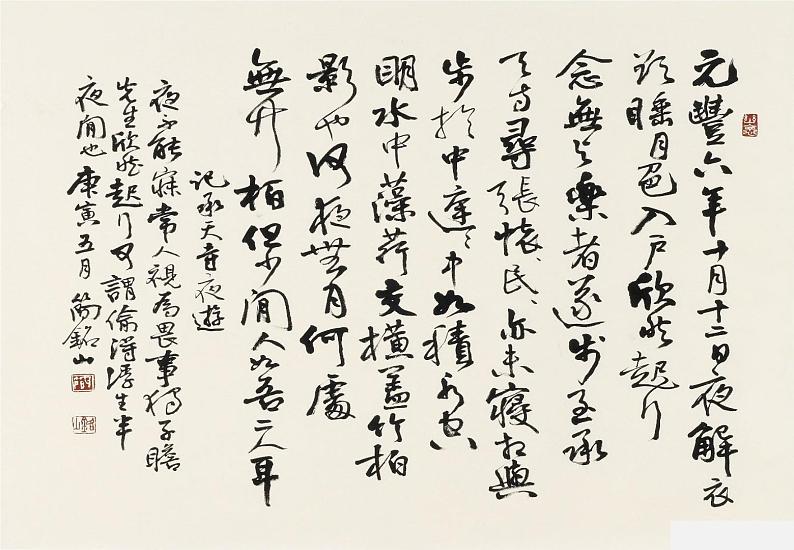 元豐六年十月十二日夜解衣
欲睡月色入戶欣然起行
念無與樂者遂步至承
天寺尋張懷民懷民亦未寢相與
步於中庭庭中如積水空
明水中藻荇交橫蓋竹柏
影也何夜無月何處
無竹柏但少閒人如吾二人耳
記承天寺夜遊
夜不能寐常人視為畏事獨子瞻
先生欣然起行可謂偷得浮生半
夜閒也庚寅五月
銘山